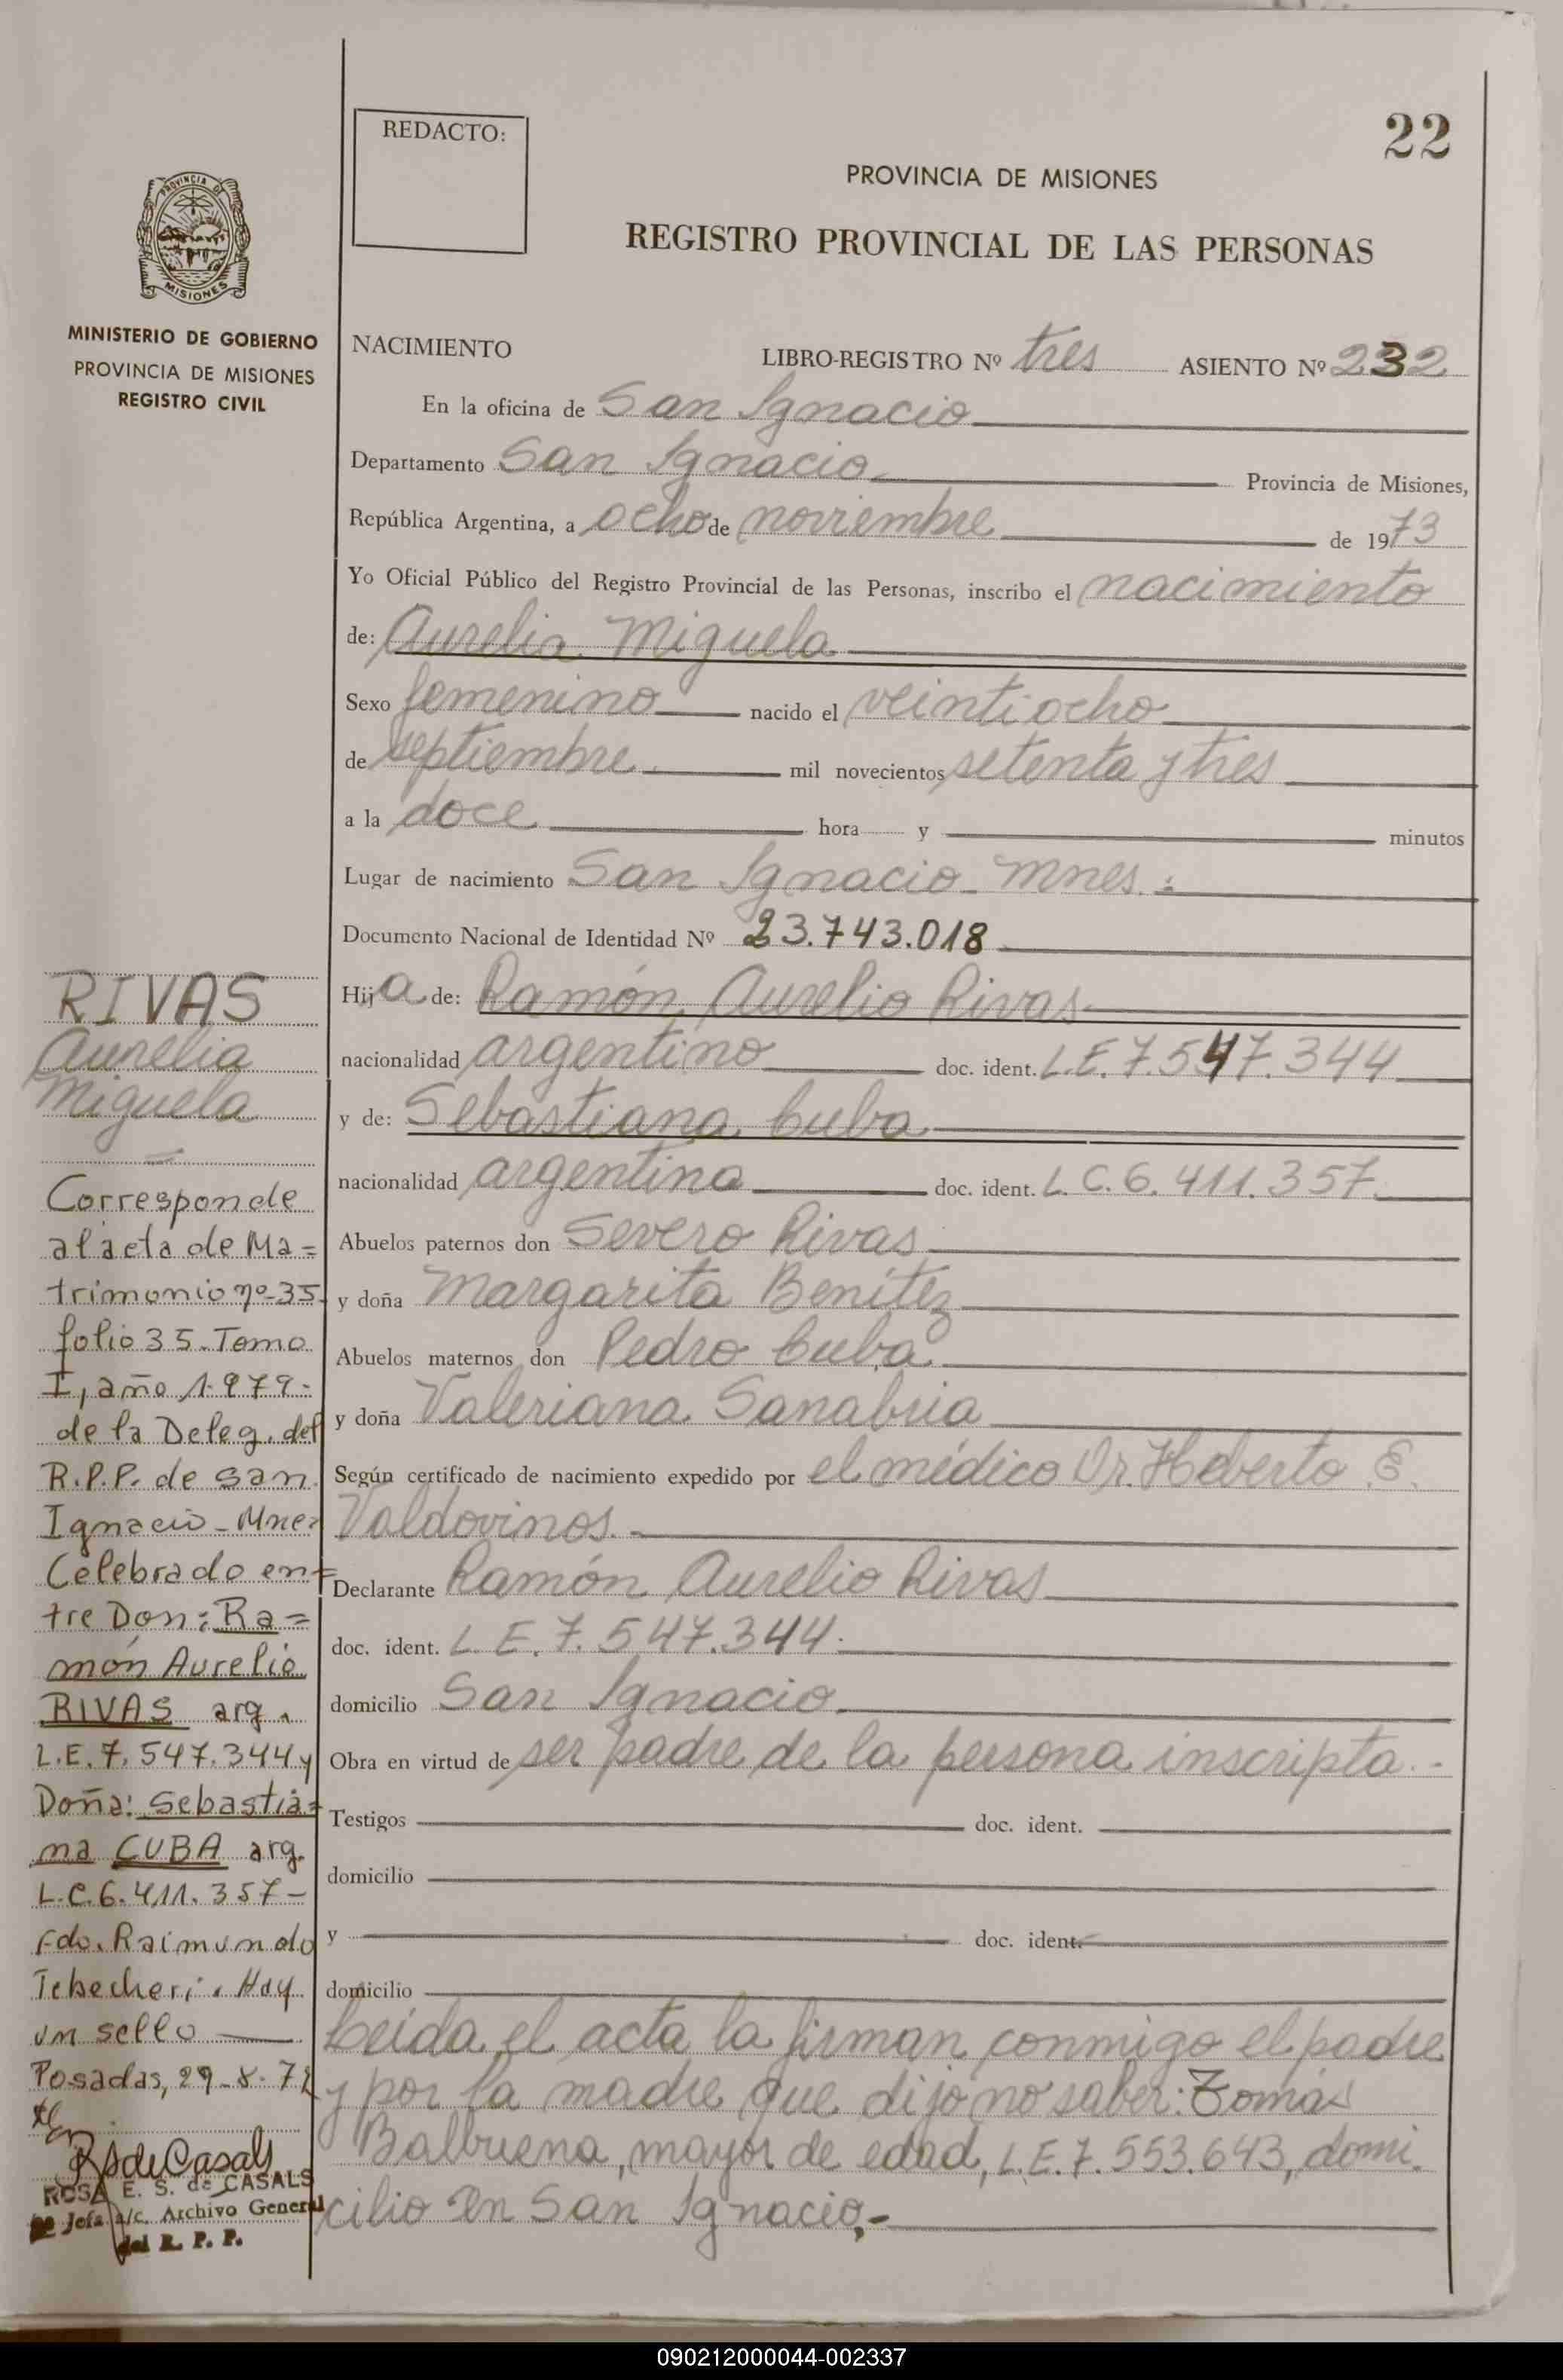 22
REDACTO:
PROVINCIA DE MISIONES
REGISTRO PROVINCIAL DE LAS PERSONAS
PROVINCIA DE
MISIONES
MINISTERIO DE GOBIERNO
PROVINCIA DE MISIONES
REGISTRO CIVIL
NACIMIENTO LIBRO-REGISTRO Nº tres ASIENTO Nº 232
En la oficina de San Ignacio
Departamento San Ignacio Provincia de Misiones,
República Argentina, a ocho de noviembre de 1973
Yo Oficial Público del Registro Provincial de las Personas, inscribo el nacimiento
de: Aurelia Miguela
Sexo femenino nacido el veintiocho
de septiembre mil novecientos setenta y tres
a la doce hora y minutos
Lugar de nacimiento San Ignacio - Mnes.
Documento Nacional de Identidad Nº 23.743.018
Hija de: Ramón Aurelio Rivas
nacionalidad argentino doc. ident. L.E. 7.547.344
y de: Sebastiana Cuba
nacionalidad argentina doc. ident. L.C. 6.411.357
Abuelos paternos don Severo Rivas
y doña Margarita Benítez
Abuelos maternos don Pedro Cuba
y doña Valeriana Sanabria
Según certificado de nacimiento expedido por el médico Dr. Heberto E.
Valdovinos.
Declarante Ramón Aurelio Rivas
doc. ident. L.E. 7.547.344.
domicilio San Ignacio
Obra en virtud de ser padre de la persona inscripta.-
Testigos doc. ident.
domicilio
y doc. ident.
domicilio
Leída el acta la firman conmigo el padre
y por la madre que dijo no saber: Tomás
Balbuena, mayor de edad, L.E. 7.553.643, domi-
cilio en San Ignacio,-
RIVAS
Aurelia
Miguela
Corresponde
al acta de Ma=
trimonio nº-35-
folio 35-Tomo
I, año 1.979-
de la Deleg. del
R.P.P. de San
Ignacio-Mnes
Celebrado en=
tre Don: Ra=
món Aurelio
RIVAS arg.
L.E. 7.547.344 y
Doña: Sebastia=
na CUBA arg.
L.C. 6.411.357-
Fdo. Raimundo
Tebecheri. Hay
un sello
Posadas, 29-8-79
RSdeCasals
ROSA E. S. de CASALS
Jefa a/c. Archivo General
del R. P. P.
090212000044-002337